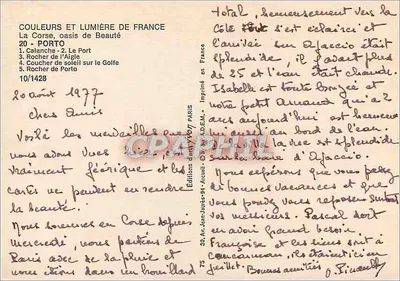 COULEURS ET LUMIÈRE DE FRANCE
La Corse, oasis de Beauté
20 - PORTO
1. Calanche - 2. Le Port
3. Rocher de l'Aigle
4. Coucher de soleil sur le Golfe
5. Rocher de Porto
10/1428
20 août 1977
Chers Amis
Voilà les merveilles que
nous avons vues c'est
vraiment féérique et les
cartes ne peuvent en rendre
la beauté.
Nous sommes en Corse depuis
mercredi, nous partions de
Paris avec de la pluie et
nous étions dans un brouillard
Editions d'art YVON PARIS
Imprimé en France
75
total, heureusement vers la
Côte tout s'est éclairci et
l'arrivée sur Ajaccio était
splendide, il faisait plus
de 25 et l'eau était chaude.
Isabelle est toute bronzée et
notre petit Arnaud qui a 2
ans aujourd'hui est heureux
au bord de l'eau.
vue est splendide
sur la baie d'Ajaccio.
Nous espérons que vous passez
de bonnes vacances et que
vous pouvez vous reposer surtout
vos messieurs. Pascal doit
en avoir grand besoin.
Françoise et les siens sont à
Concarneau, ils étaient ici en
juillet. Bonnes amitiés